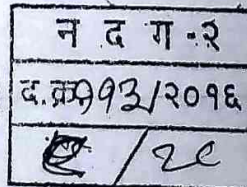 न द ग - २
द. क्र.११३/२०१६
/ २८